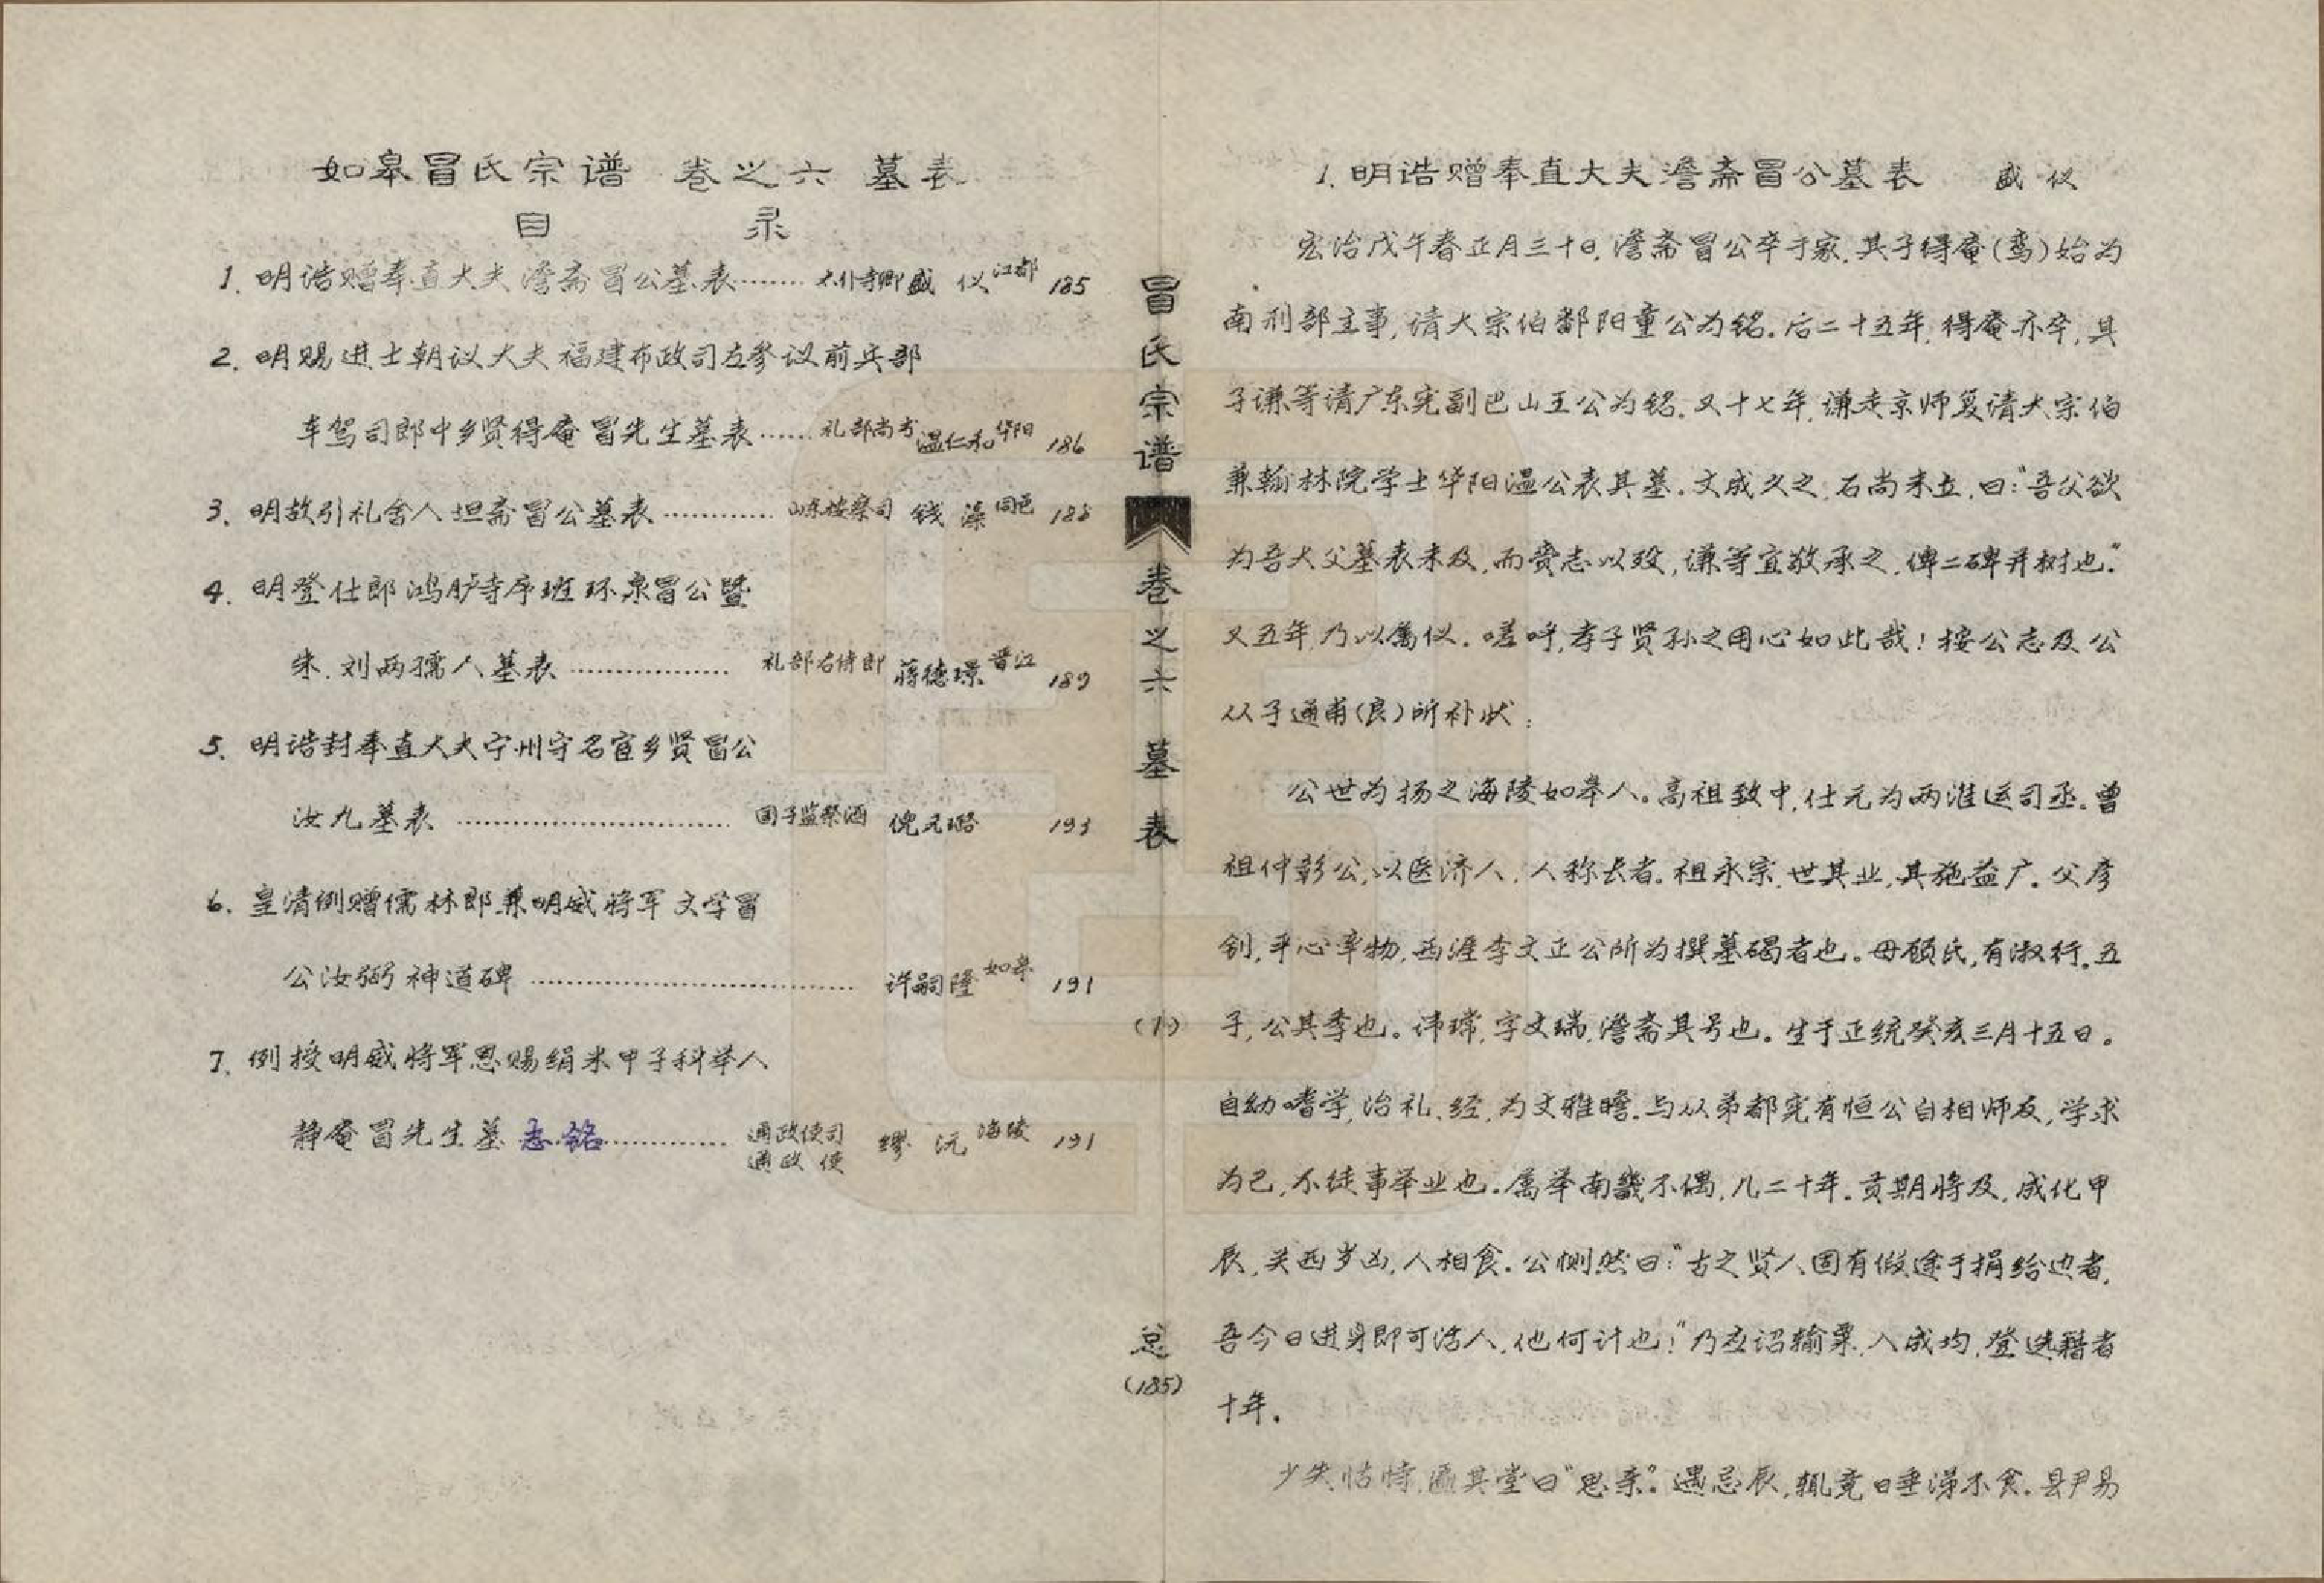 如皋冒氏宗谱 卷之六 墓表
目 录
1. 明诰赠奉直大夫澹斋冒公墓表……… 太仆寺卿盛 仪 江都 185
2. 明赐进士朝议大夫福建布政司左参议前兵部
车驾司郎中乡贤得庵冒先生墓表…… 礼部尚书 温仁和 华阳 186
3. 明故引礼舍人坦斋冒公墓表………… 山东按察司 钱 藻 同邑 188
4. 明登仕郎鸿胪寺序班环泉冒公暨
朱.刘两孺人墓表……………… 礼部右侍郎 蒋德璟 晋江 189
5. 明诰封奉直大夫宁州守名宦乡贤冒公
汝九墓表……………………… 国子监祭酒 倪元璐 193
6. 皇清例赠儒林郎兼明威将军文学冒
公汝弼神道碑……………………………… 许嗣隆 如皋 191
7. 例授明威将军恩赐绢米甲子科举人
静庵冒先生墓志铭………… 通政使司通政使 缪 沅 海陵 191
冒氏宗谱 卷之六 墓表 (1) 总(185)
1. 明诰赠奉直大夫澹斋冒公墓表 盛 仪
宏治戊午春正月三十日,澹斋冒公卒于家.其子得庵(鸾)始为
南刑部主事,请大宗伯鄱阳童公为铭.后二十五年,得庵亦卒,其
子谦等请广东宪副巴山王公为铭.又十七年,谦走京师复请大宗伯
兼翰林院学士华阳温公表其墓.文成久之,石尚未立,曰:"吾父欲
为吾大父墓表未及,而赍志以殁,谦等宜敬承之,俾二碑并树也."
又五年,乃以属仪.嗟呼,孝子贤孙之用心如此哉!按公志及公
从子通甫(良)所补状:
公世为扬之海陵如皋人。高祖致中,仕元为两淮运司丞.曾
祖仲彰公,以医济人,人称长者.祖永宗,世其业,其施益广.父彦
钊,平心率物,西涯李文正公所为撰墓碣者也。母顾氏,有淑行.五
子,公其季也。讳瑺,字文瑞,澹斋其号也。生于正统癸亥三月十五日。
自幼嗜学,治礼、经,为文雅赡.与从弟都宪有恒公自相师友,学求
为己,不徒事举业也.屡举南畿不偶,几二十年.贡期将及,成化甲
辰,关西岁凶,人相食.公恻然曰:"古之贤人固有假途于捐给边者,
吾今日进身即可活人,他何计也!"乃应诏输粟,入成均,登选籍者
十年.
少失怙恃,匾其堂曰"思亲"。遇忌辰,辄竟日垂涕不食.县尹易